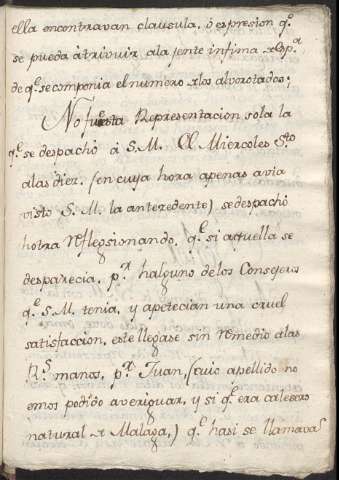 ella encontravan clausula, ó espresion q.e
se pueda àtrivuir ala jente infima del P.o
de q.e se componia el numero de los alvorotados;
No fue esta Representacion sola la
q.e se despachó á S.M. El Miercoles S.to
alas diez, (en cuya hora apenas avia
visto S. M. la anteredente) se despachó
hotra Reflegsionando, q.e si aquella se
desparecia, p.r halguno de los Consegeros
q.e S.M. tenia, y apetecian una cruel
satisfaccion, este llegase sin Remedio alas
R.s manos, p.r Juan, (cuio apellido no
emos podido averiguar, y si q.e era calesero
natural de Malaga,) q.e hasi se llamava